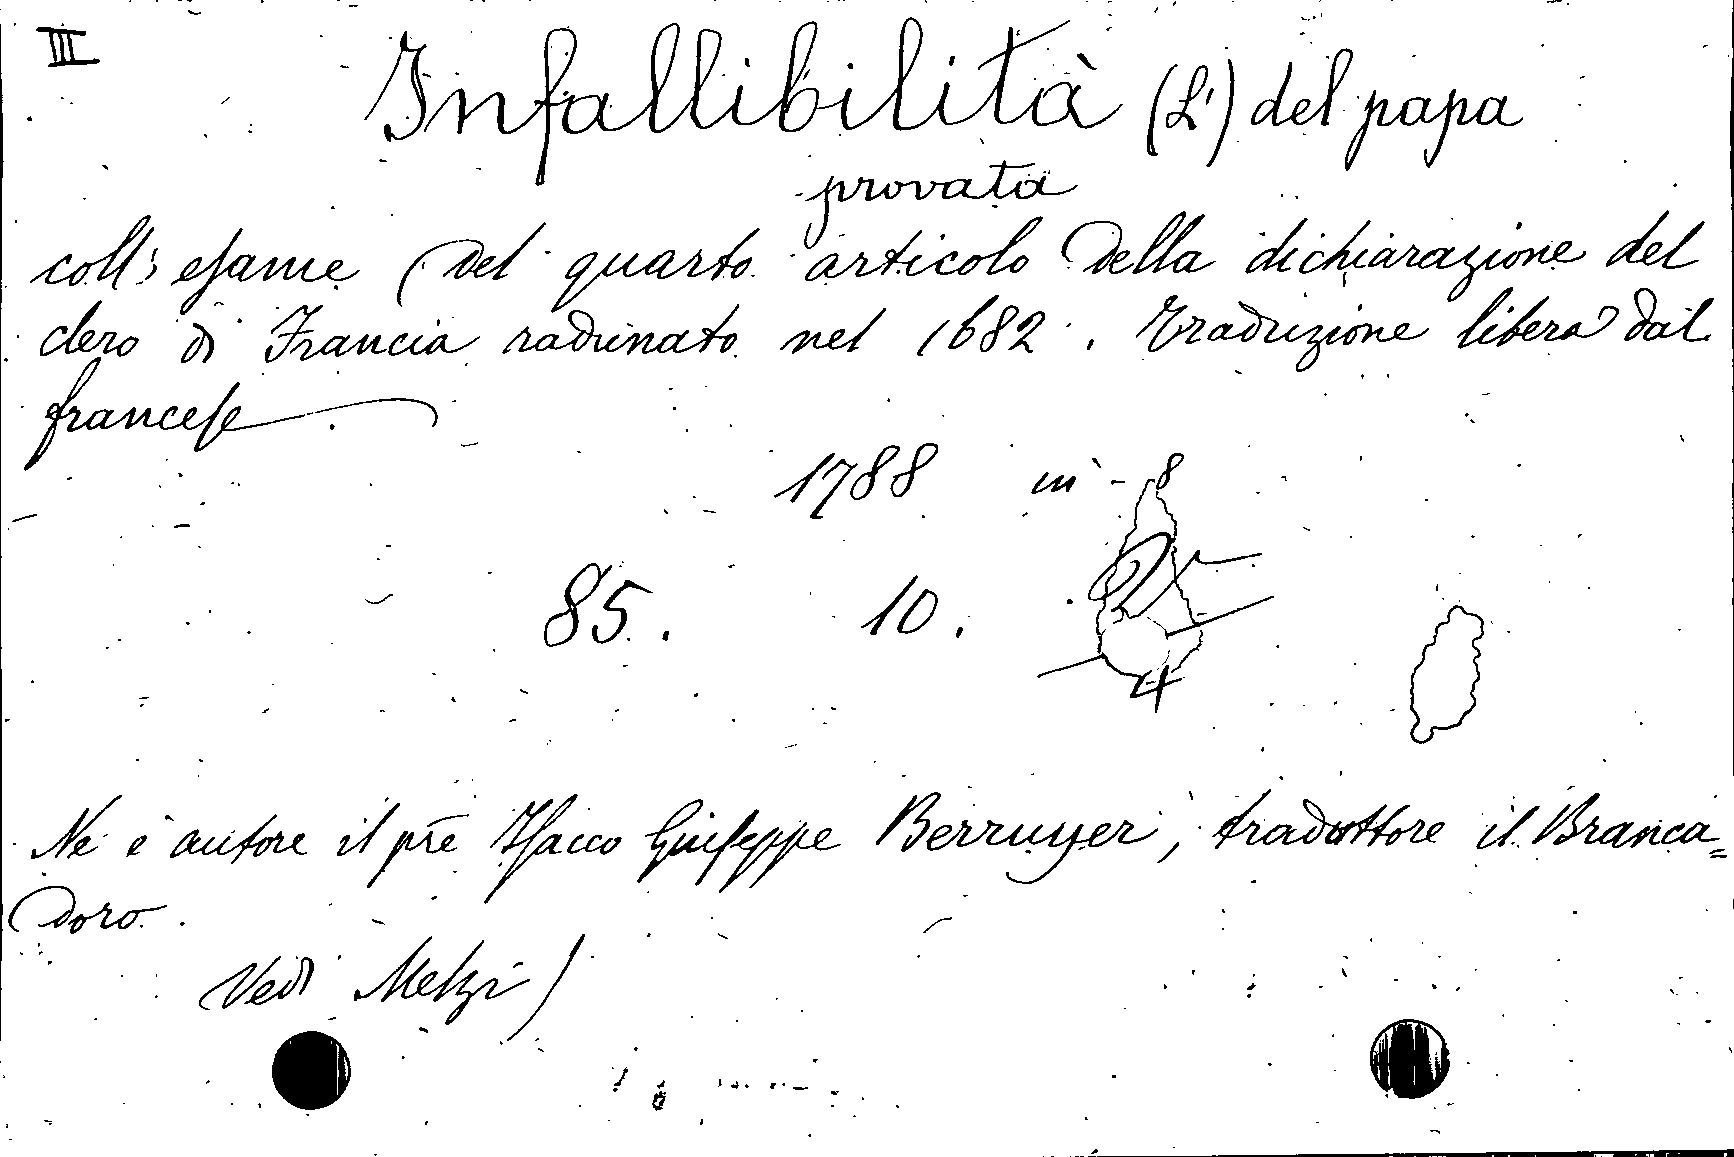 III
Infallibilità (L') del papa
provata
coll' esame del quarto articolo della dichiarazione del
clero di Francia radunato nel 1682. Traduzione libera dal
francese
1788 in-8
85. 10.
4
Ne è autore il pre Isacco Giuseppe Berruyer, traduttore il Branca=
doro.
Vedi Melzi